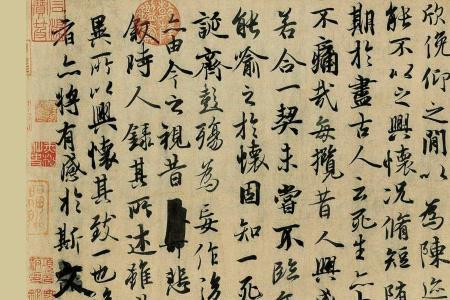 欣俛仰之閒以為陳迹
能不以之興懷況脩短隨
期於盡古人云死生亦
不痛哉每攬昔人興感
若合一契未嘗不臨
能喻之於懷固知一死
誕齊彭殤為妄作後
亦由今之視昔悲
敘時人錄其所述雖
異所以興懷其致一也
者亦將有感於斯文